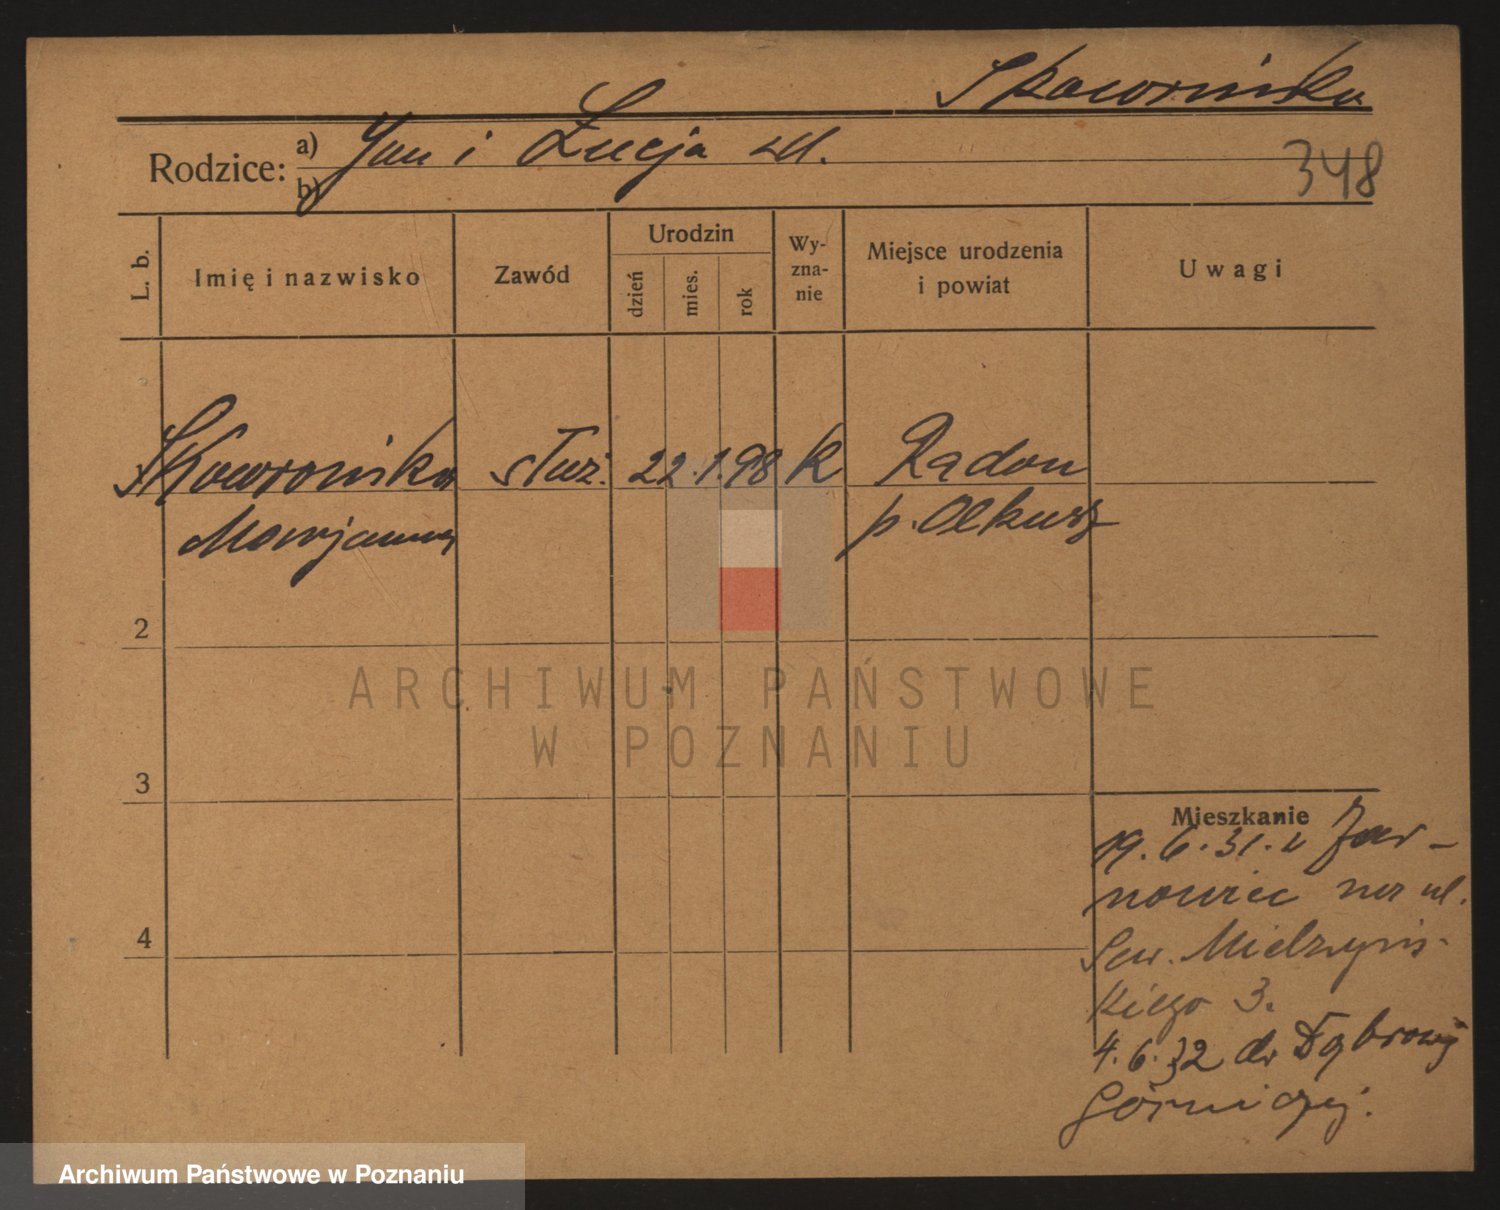 Skowrońska
Rodzice: a) Jan i Łucja
b)
348
L. b.
Imię i nazwisko
Zawód
Urodzin
dzień
mies.
rok
Wy-
zna-
nie
Miejsce urodzenia
i powiat
Uwagi
Skowrońska służ. 22.1.98 k Radoń
Marjanna p. Olkusz
2
3
4
Mieszkanie
19.6.31. z Żar-
nowiec na ul.
Sew. Mielżyńs-
kiego 3.
4.6.32 do Dąbrowy
Górniczej.
ARCHIWUM PAŃSTWOWE
W POZNANIU
Archiwum Państwowe w Poznaniu